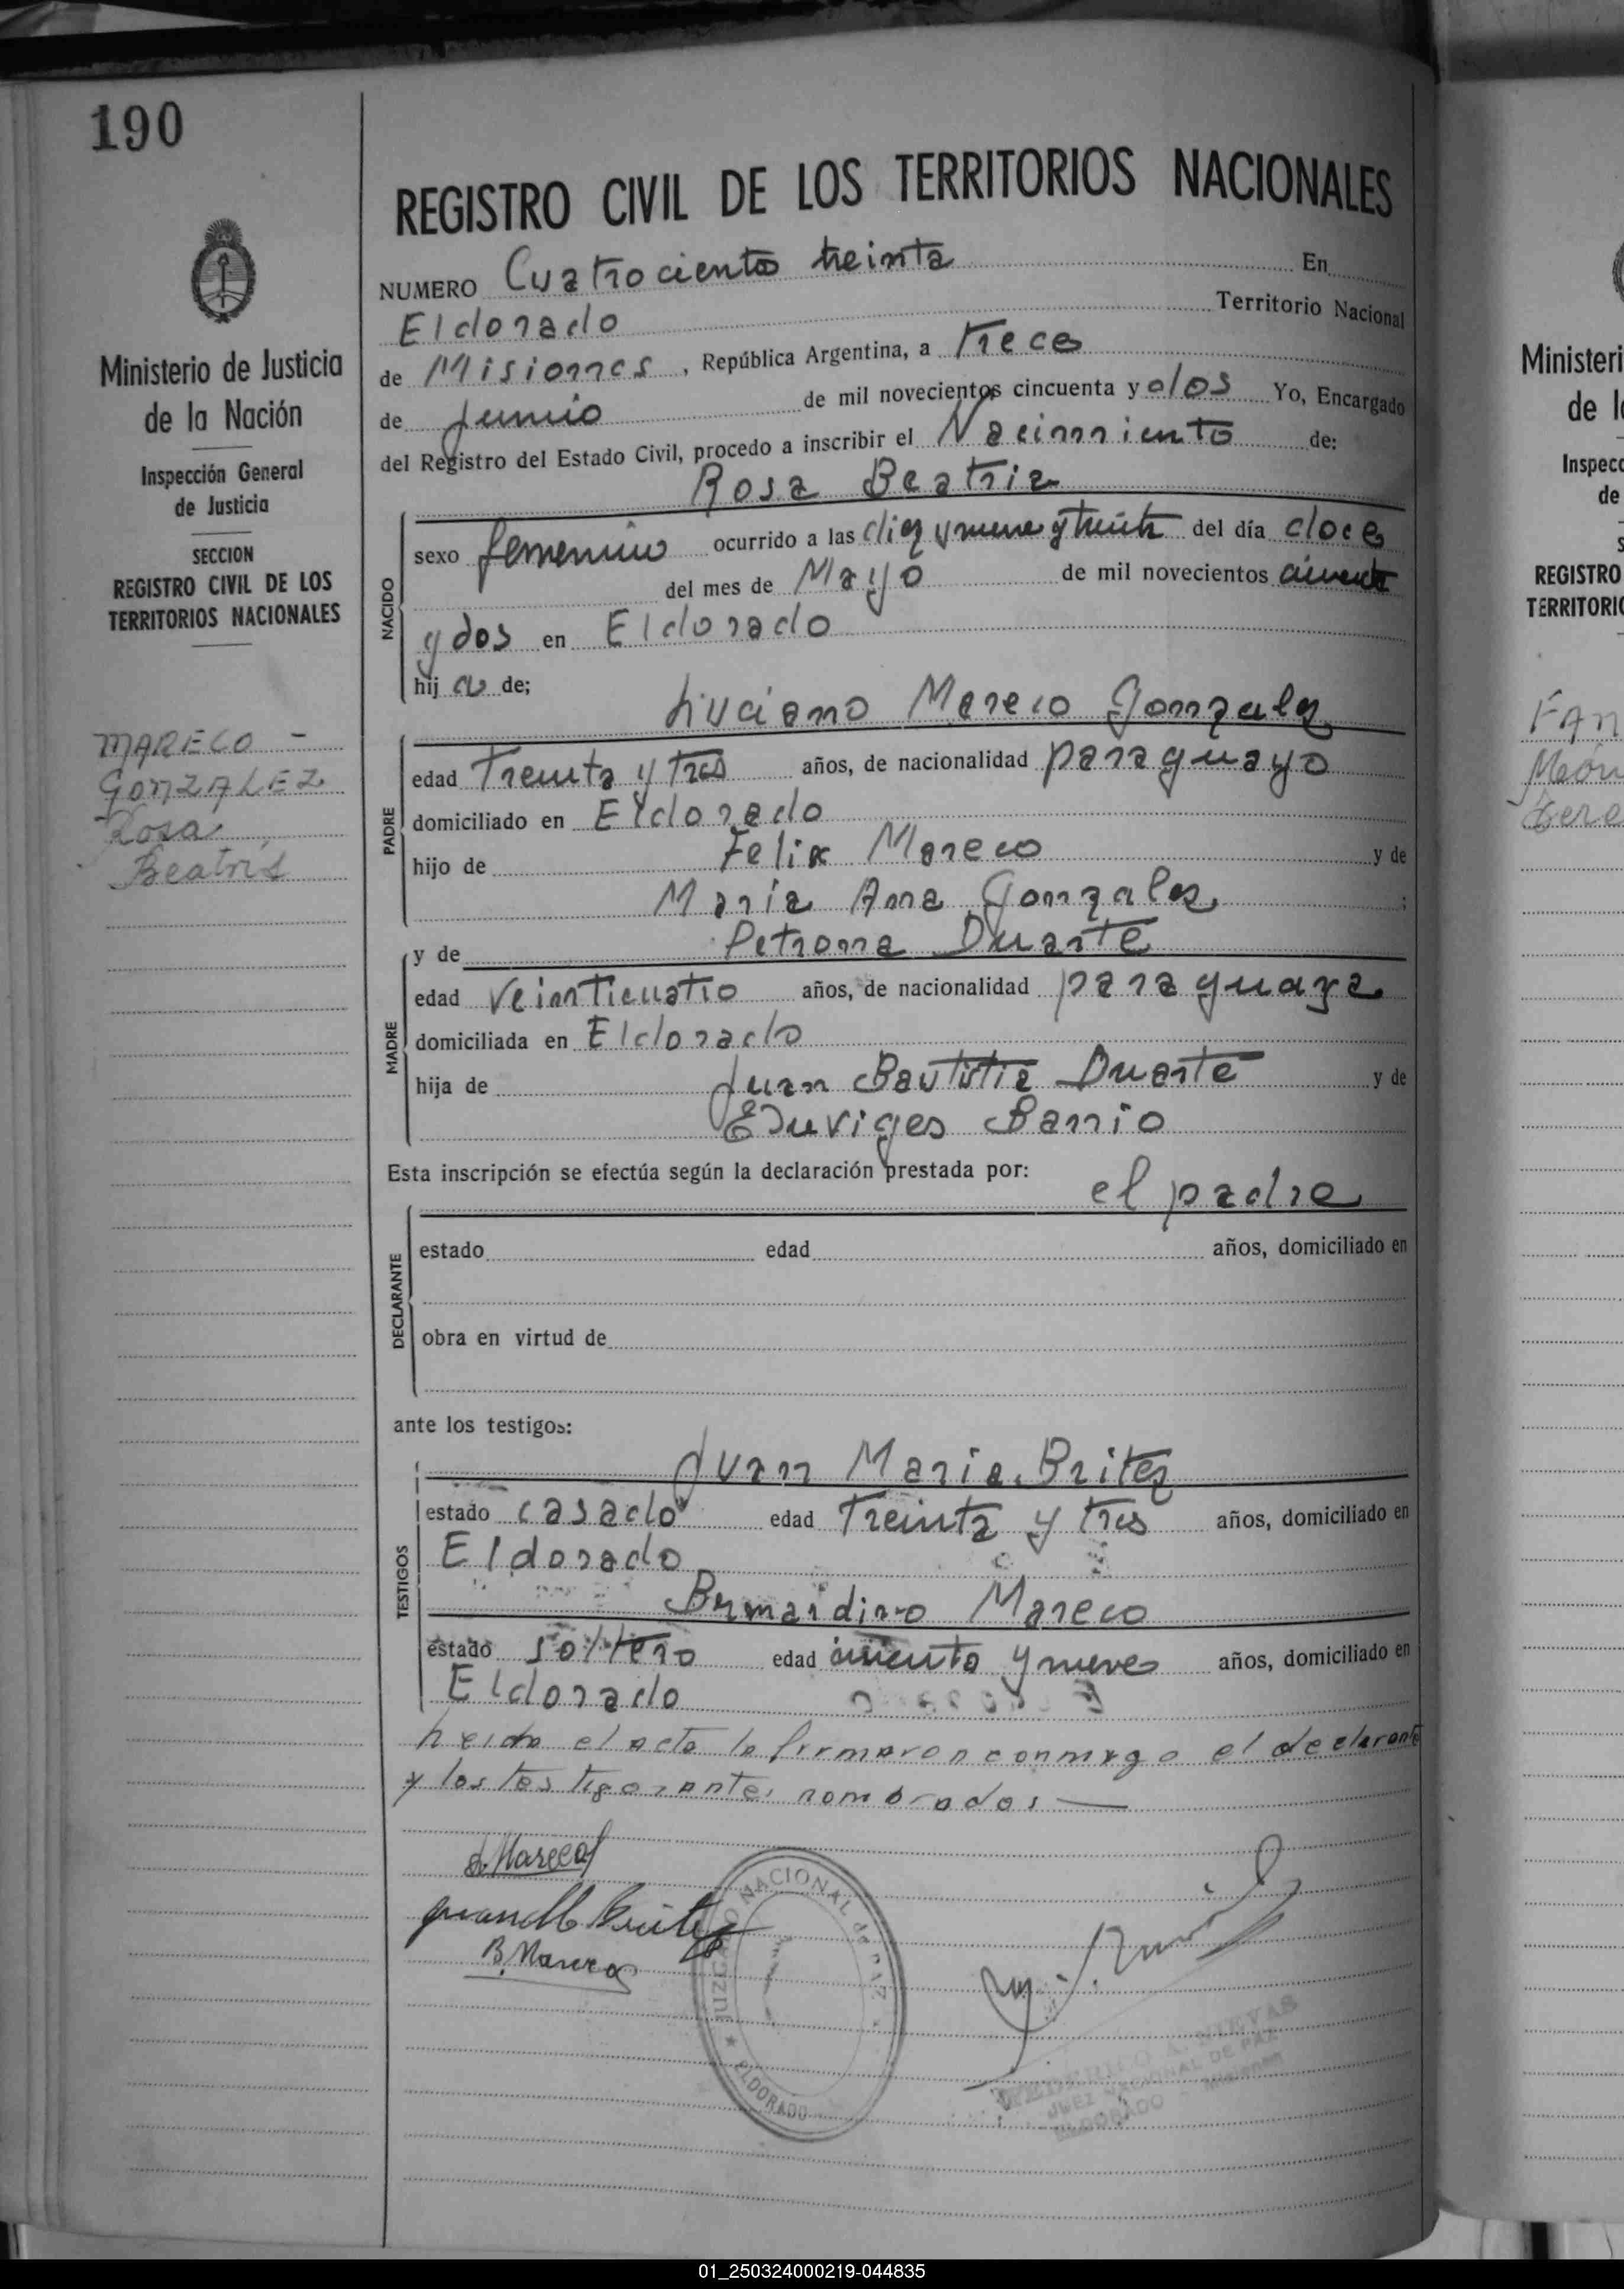 190
REGISTRO CIVIL DE LOS TERRITORIOS NACIONALES
Ministerio de Justicia
de la Nación
Inspección General
de Justicia
SECCION
REGISTRO CIVIL DE LOS
TERRITORIOS NACIONALES
MARECO -
GONZALEZ
Rosa
Beatris
NUMERO Cuatrocientos treinta En
Eldorado Territorio Nacional
de Misiones, República Argentina, a Trece
de Junio de mil novecientos cincuenta y dos Yo, Encargado
del Registro del Estado Civil, procedo a inscribir el Nacimiento de:
Rosa Beatriz
NACIDO
sexo femenino ocurrido a las diez y nueve y treinta del día doce
del mes de Mayo de mil novecientos cincuenta
y dos en Eldorado
hij a de;
Luciano Mareco Gonzalez
PADRE
edad Treinta y tres años, de nacionalidad paraguayo
domiciliado en Eldorado
hijo de Felix Mareco y de
Maria Ana Gonzales ;
y de Petrona Duarte
MADRE
edad Veinticuatro años, de nacionalidad paraguaya
domiciliada en Eldorado
hija de Juan Bautista Duarte y de
Eduviges Barrio
Esta inscripción se efectúa según la declaración prestada por:
el padre
DECLARANTE
estado edad años, domiciliado en
obra en virtud de
ante los testigos:
Juan Maria Britez
TESTIGOS
estado casado edad Treinta y tres años, domiciliado en
Eldorado
Bernardino Mareco
estado soltero edad cincuenta y nueve años, domiciliado en
Eldorado
Leida el acta la firmaron conmigo el declarante
y los testigos antes nombrados —
L. Mareco
Juan M Britez
B. Mareco
JUZGADO NACIONAL DE PAZ
★ ELDORADO
FEDERICO A. NIEVAS
JUEZ NACIONAL DE PAZ
ELDORADO - Misiones
Ministeri
de l
Inspecc
de
S
REGISTRO
TERRITORIO
01_250324000219-044835